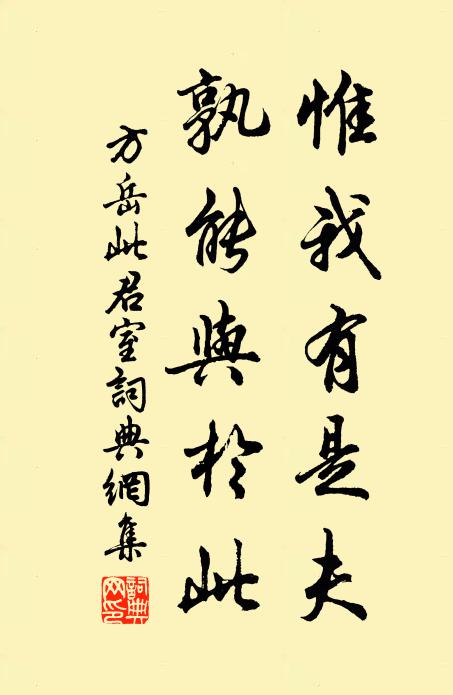 惟我有是夫
孰能與於此
方岳此君室詞典網集
詞典网印